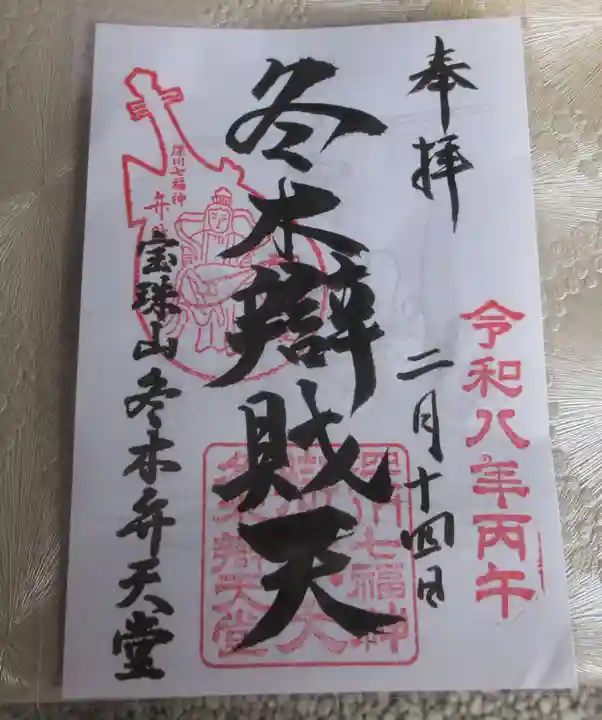 奉拝
令和八年丙午
二月十四日
冬木辯財天
深川七福神
冬木弁天堂
深川七福神
宝珠山冬木弁天堂